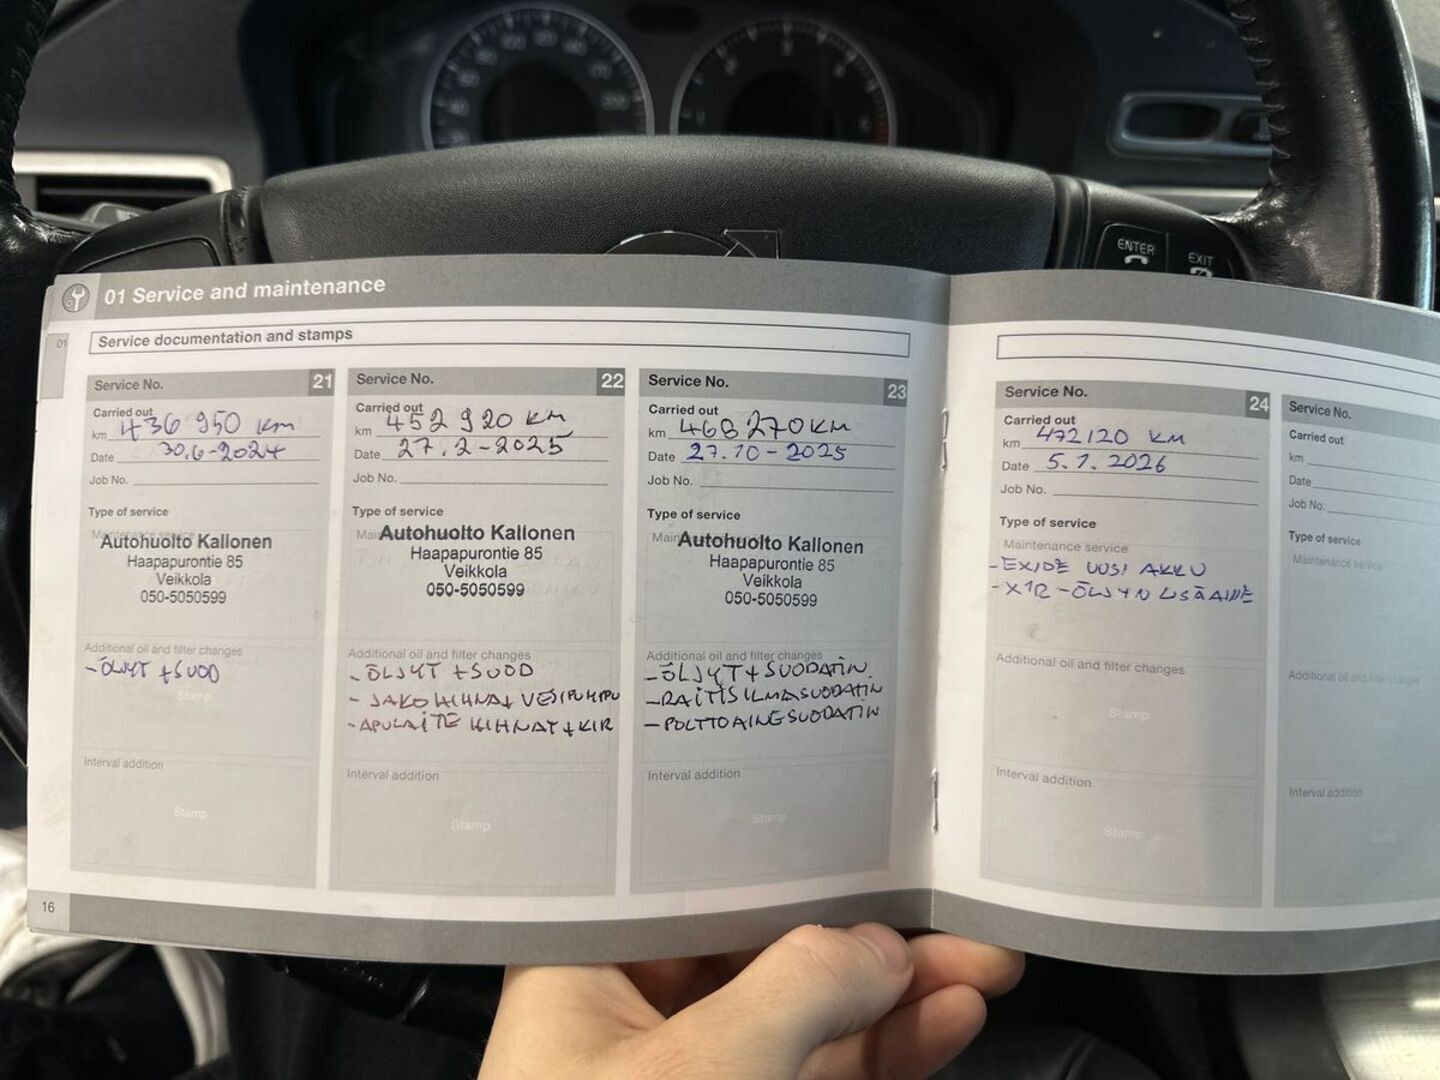 ENTER
EXIT
01 Service and maintenance
01
Service documentation and stamps
Service No. 21
Carried out
km 436 950 km
Date 30.6-2024
Job No.
Type of service
Maintenance service
Autohuolto Kallonen
Haapapurontie 85
Veikkola
050-5050599
Additional oil and filter changes
- ÖLJYT + SUOD
Stamp
Interval addition
Stamp
Service No. 22
Carried out
km 452 920 km
Date 27.2-2025
Job No.
Type of service
Autohuolto Kallonen
Haapapurontie 85
Veikkola
050-5050599
Additional oil and filter changes
- ÖLJYT + SUOD
- JAKOHIHNA + VESIPUMPPU
- APULAITE HIHNAT + KIR
Interval addition
Stamp
Service No. 23
Carried out
km 468 270 KM
Date 27.10-2025
Job No.
Type of service
Autohuolto Kallonen
Haapapurontie 85
Veikkola
050-5050599
Additional oil and filter changes
- ÖLJYT + SUODATIN.
- RAITISILMASUODATIN
- POLTTOAINESUODATIN
Interval addition
Stamp
16
Service No. 24
Carried out
km 472120 KM
Date 5.1.2026
Job No.
Type of service
Maintenance service
- EXIDE UUSI AKKU
- X1R - ÖLJYN LISÄAINE
Additional oil and filter changes
Stamp
Interval addition
Stamp
Service No.
Carried out
km
Date
Job No.
Type of service
Maintenance service
Additional oil and filter changes
Interval addition